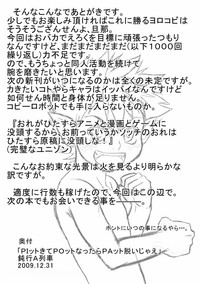 そんなこんなであとがきです。
少しでもお楽しみ頂ければこれに勝るヨロコビは
そうそうござんせんよ、旦那。
今回はおバカでえろくを目標に頑張ったつもり
なんですけど、まだまだまだまだ(以下1000回
繰り返し)力不足です。
ので、もうちょっと同人活動続けて
腕を磨きたいと思います。
次の新刊がいつになるのかは全くの未定ですが。
カキたいコトやらキャラはイッパイなんですけど
如何せん時間と身体が足りません。
コピーロボットでも手に入らないものか。
『おれがひたすらアニメと漫画とゲームに
没頭するから、お前っていうかソッチのおれは
ひたすら原稿に没頭しな!』
(完璧なユニゾン)
こんなお約束な光景は火を見るより明らかな
訳ですが。
適度に行数も稼げたので、今回はこの辺で。
次の本でもお会いできる事を――。
ホントにいつの事になるやら…。
奥付
「PIットきてPOットなったらPAット脱いじゃえ」
鈍行A列車
2009.12.31